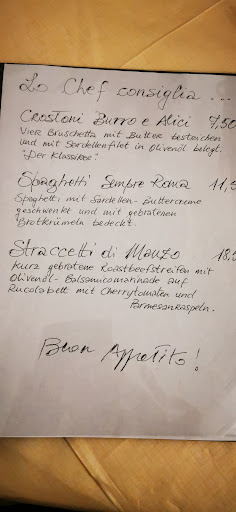 Lo Chef consiglia ...
Crostoni Burro e Alici 7,50
Vier Bruschetta mit Butter bestreichen
und mit Sardellenfilet in Olivenöl belegt.
"Der Klassiker!
Spaghetti Sempre Roma 11,5
Spaghetti, mit Sardellen-Buttercreme
geschwenkt und mit gebratenen
Brotkrümeln bedeckt.
Straccetti di Manzo 18,5
Kurz gebratene Roastbeefstreifen mit
Olivenöl-Balsamicomarinade auf
Rucolabett mit Cherrytomaten und
Parmesanraspeln.
Buon Appetito!